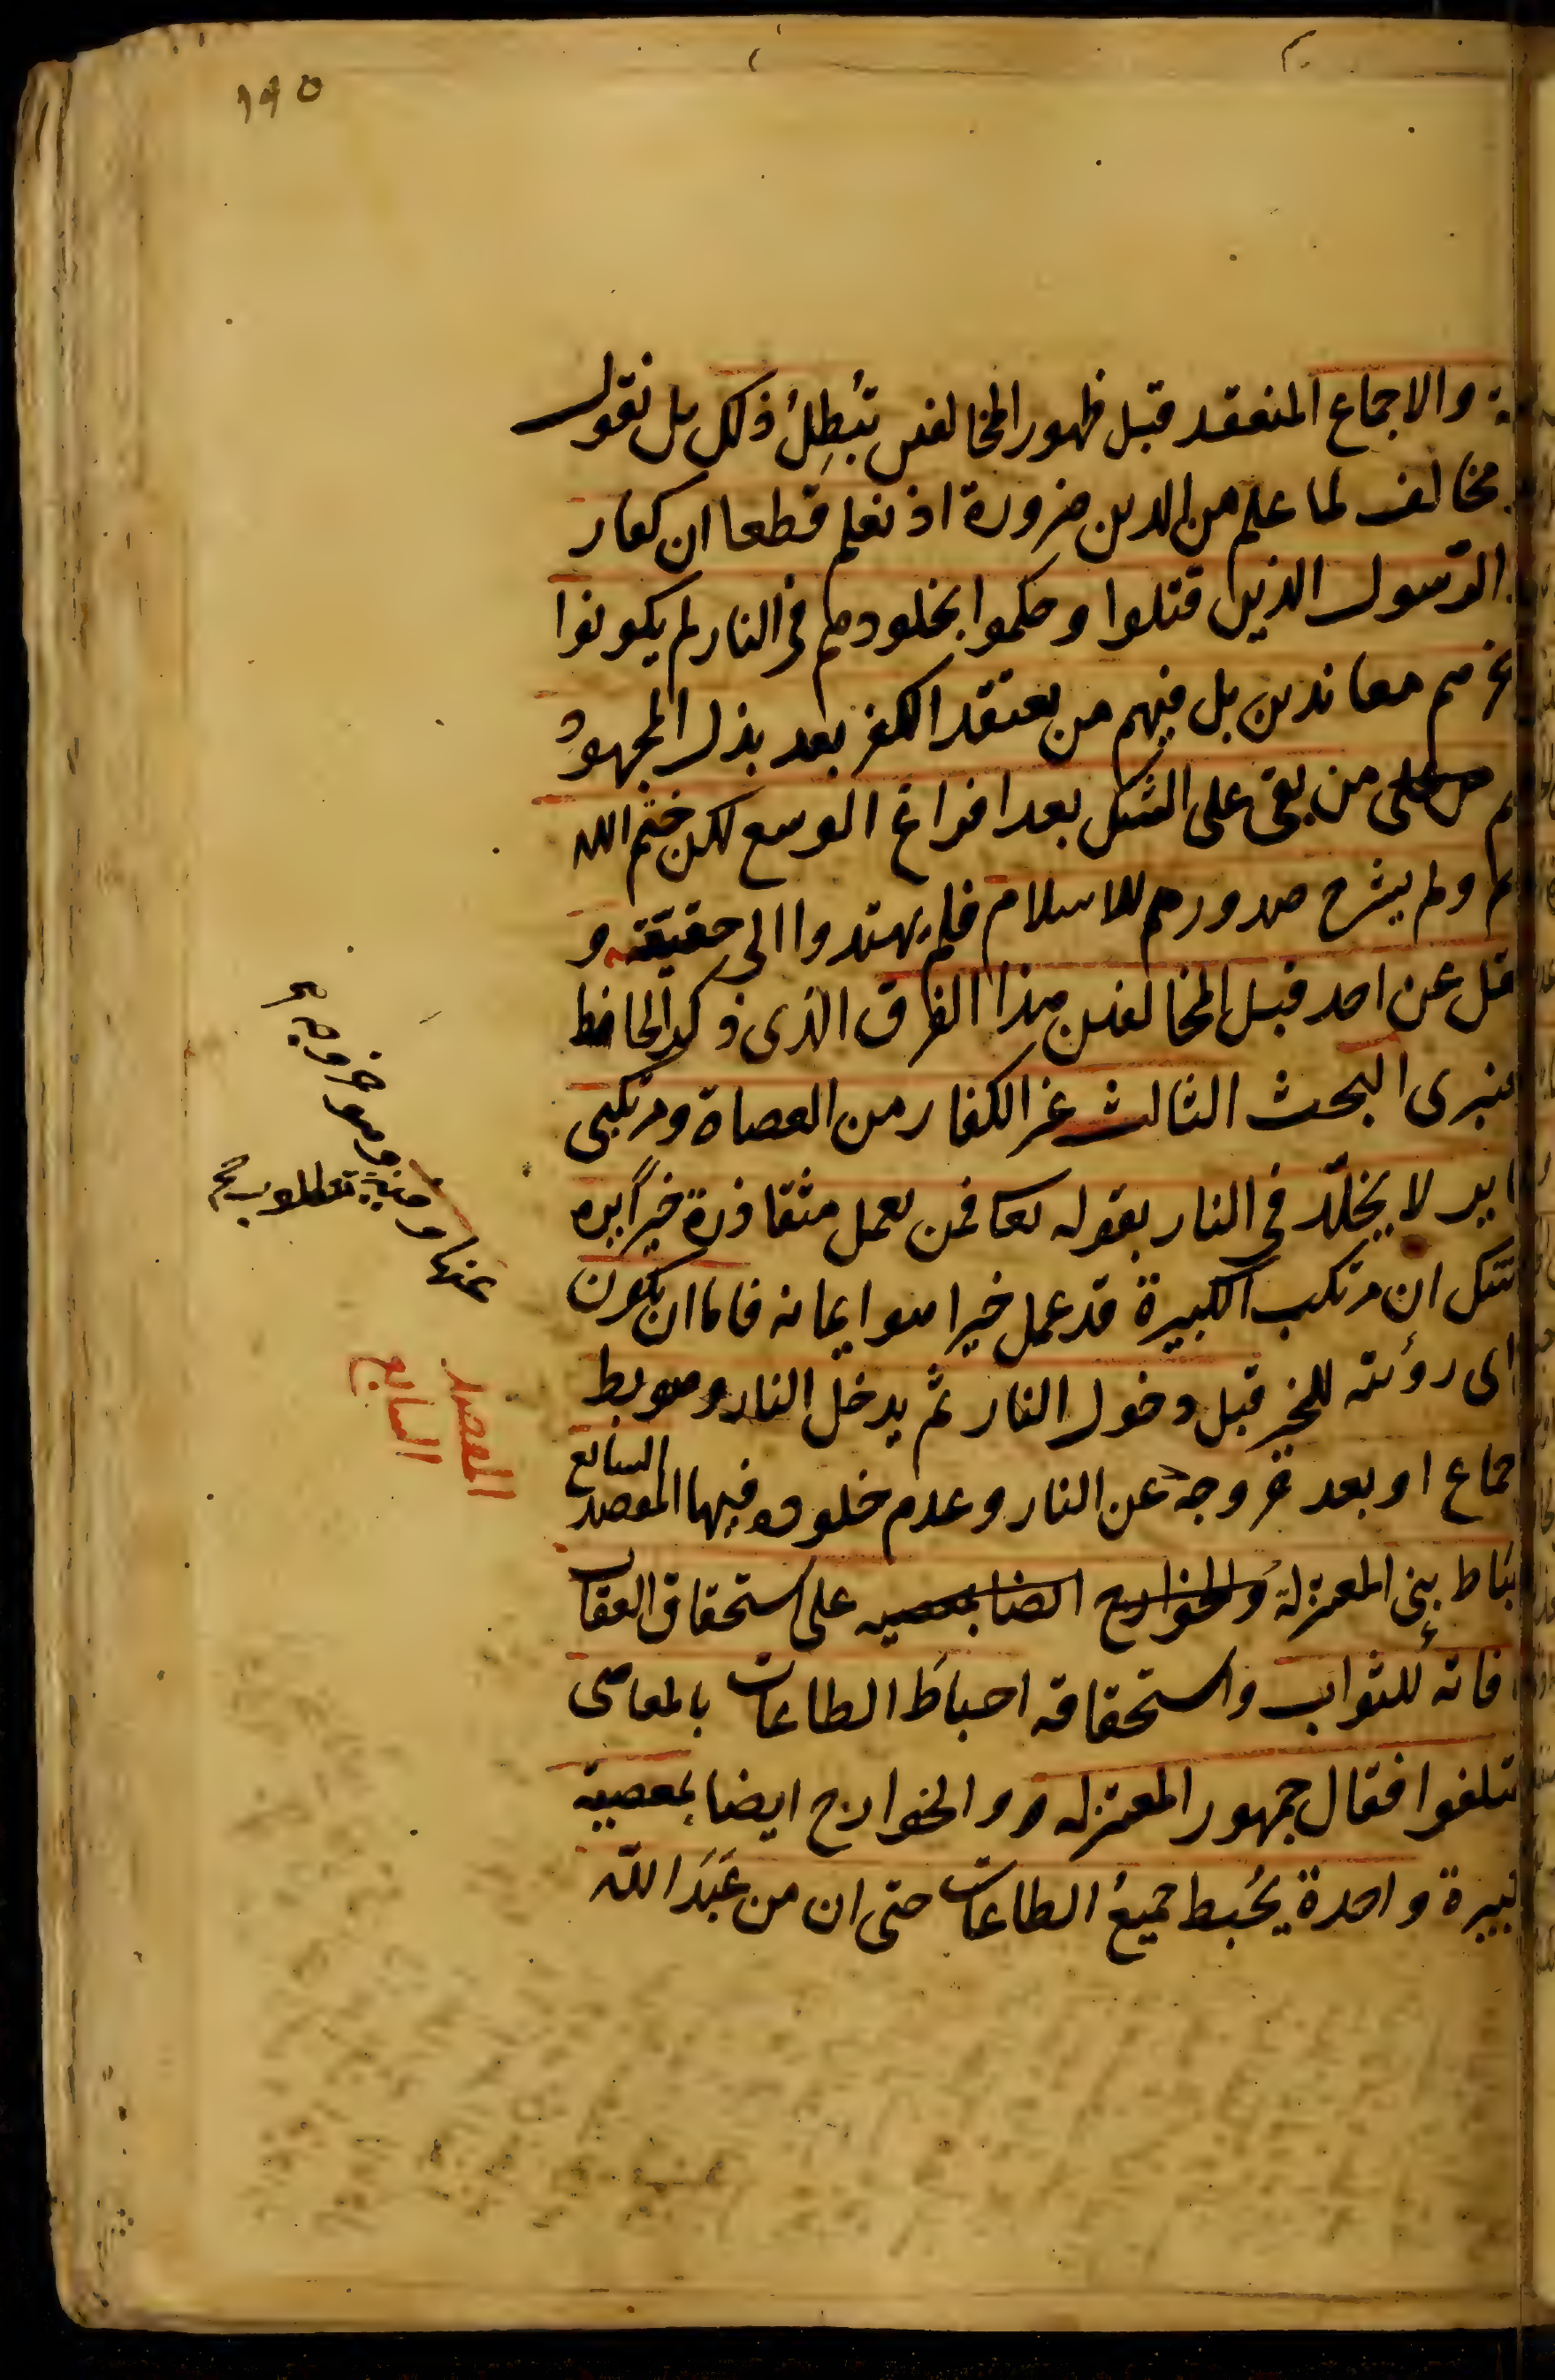 ١٩٥
والاجماع المنعقد قبل ظهور المخالفين تُبطِلُ ذلك بل نقول
مخالف لما علم من الدين ضرورة اذ نعلم قطعا ان كفار
الرّسول الذين قتلوا وحكموا بخلودهم في النار لم يكونوا
معاندين بل فيهم من يعتقد الكفر بعد بذل المجهود
من بقى على الشك بعد افراغ الوسع لكن ختم الله
ولم يشرح صدورهم للاسلام فلم يهتدوا الى حقيقته و
قل عن احد قبل المخالفين هذا الفرق الذى ذكره الحافظ
عنبرى البحث الثالث غير الكفار من العصاة ومرتكبى
لا يخلّد في النار بقوله تعا فمن يعمل مثقا ذرة خيراً يره
شك ان مرتكب الكبيرة قد عمل خيرا هو ايمانه فاما ان يكون
اى رؤيته للخير قبل دخول النار ثم يدخل النار وهو بط
جماع او بعد خروجه عن النار وعدم خلوده فيها المقصد السابع
بَاط بنى المعتزلة والخوارج ايضا بمعصيه على استحقاق العقاب
فاته للثواب واستحقاقه احباطَ الطاعات بالمعاصى
تلفوا فقال جمهور المعتزله و والخوارج ايضا بمعصية
بيرة واحدة يُحبط جميعُ الطاعات حتى ان من عَبَدَ الله
عنها
المقصد
السابع